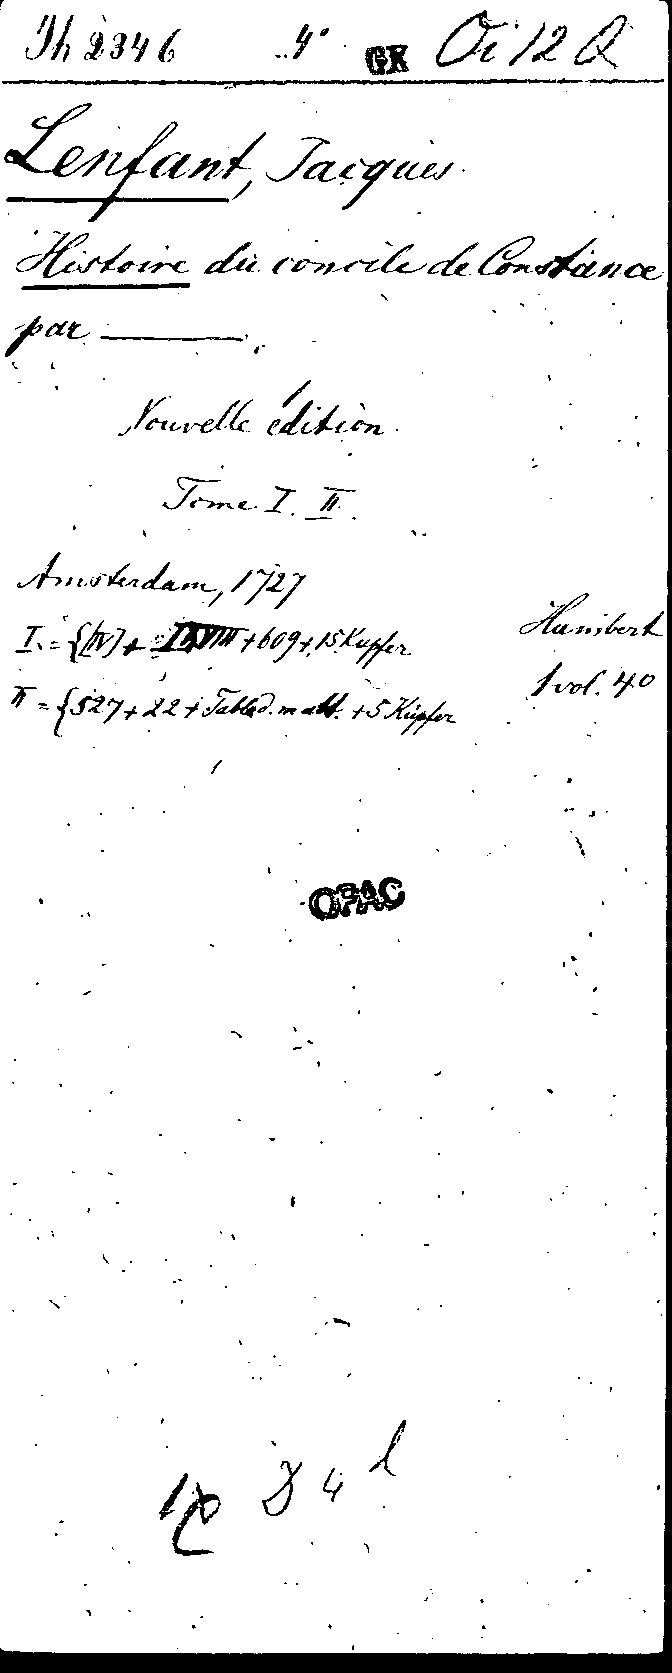 Th 2346 4° GK Oi 12 Q
Lenfant, Jacques
Histoire du concile de Constance
par ———.
Nouvelle édition
Tome I. II.
Amsterdam, 1727
I. = {[IV] + + 609 + 15 Kupfer
Humbert
1 vol. 40
II = {527 + 22 + Table d. matt. + 5 Kupfer
OPAC
D 4 l